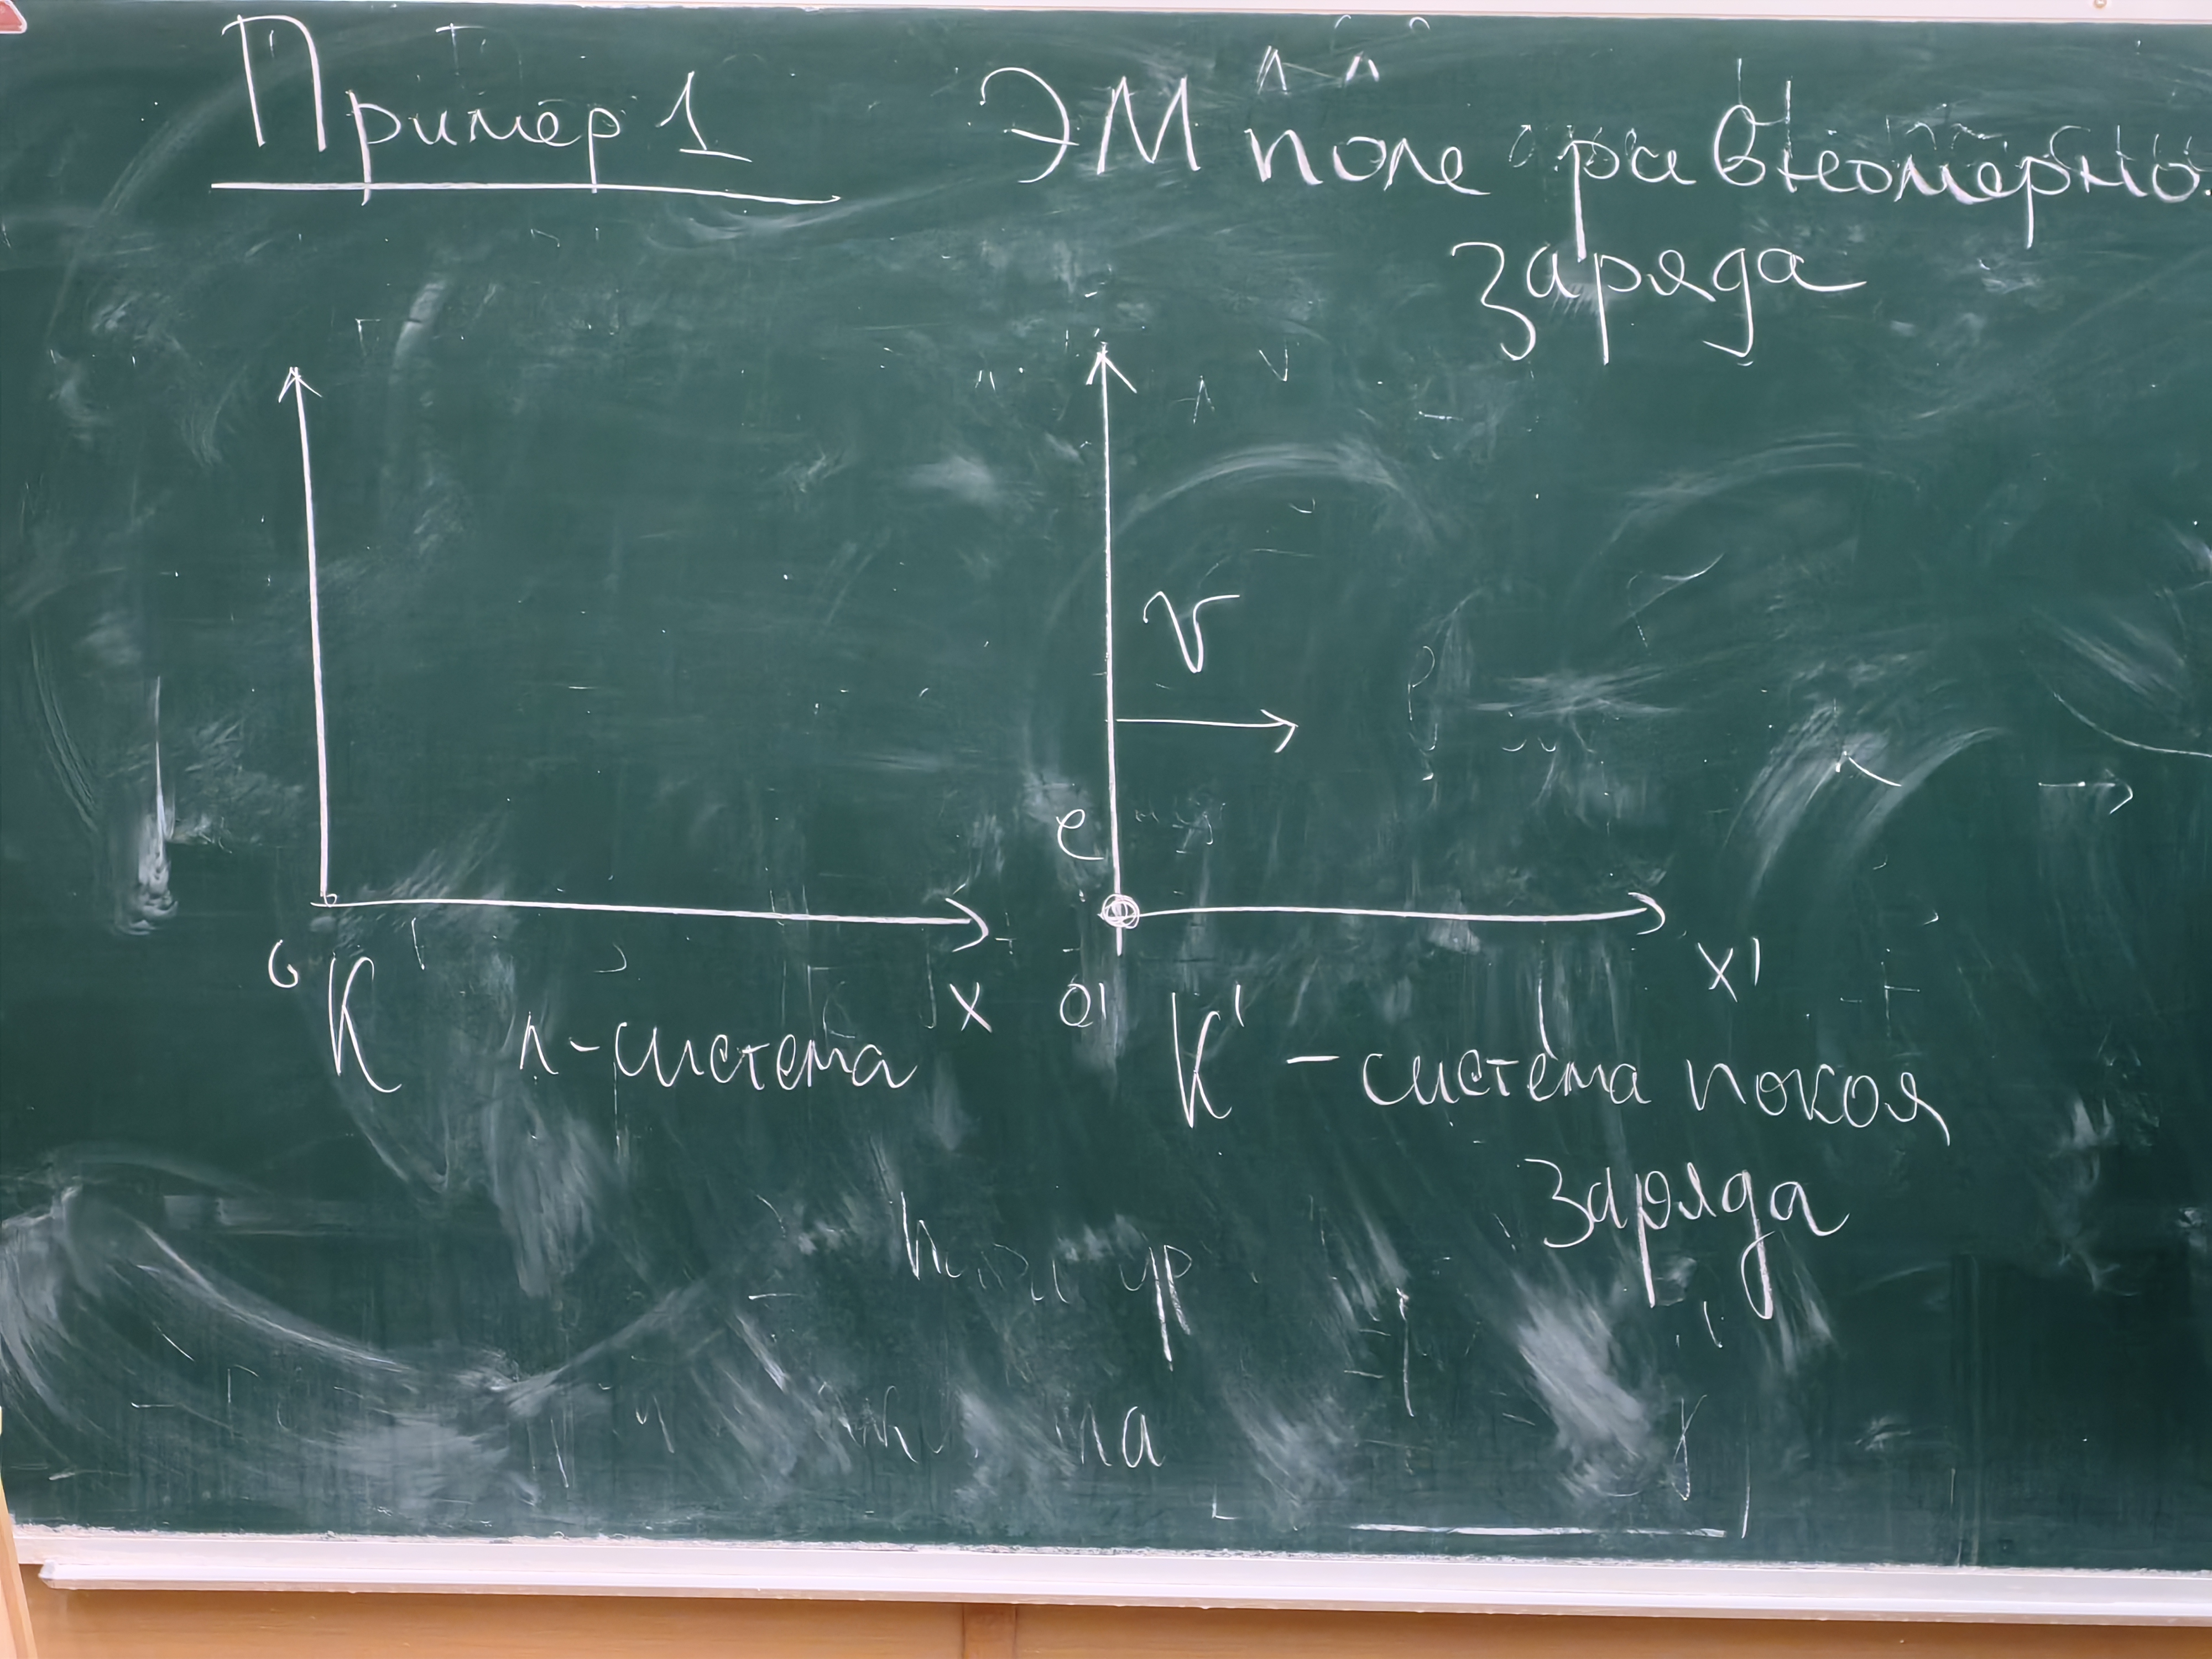 Пример 1 ЭМ поле равномерно
заряда
v
e
x O' x'
K л-система K' - система покоя
заряда